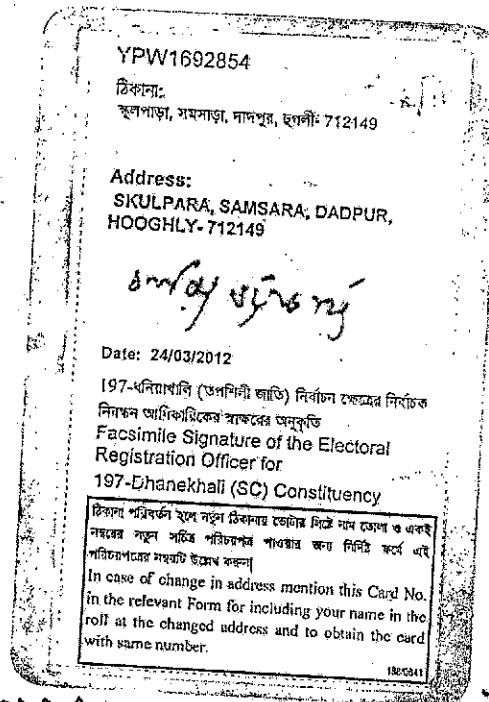 YPW1692854
ঠিকানা:
স্কুলপাড়া, সমসাড়া, দাদপুর, হুগলী- 712149
Address:
SKULPARA, SAMSARA, DADPUR,
HOOGHLY- 712149
Date: 24/03/2012
197-ধনিয়াখালি (তপশিলী জাতি) নির্বাচন ক্ষেত্রের নির্বাচক
নিবন্ধন আধিকারিকের স্বাক্ষরের অনুকৃতি
Facsimile Signature of the Electoral
Registration Officer for
197-Dhanekhali (SC) Constituency
ঠিকানা পরিবর্তন হলে নতুন ঠিকানায় ভোটার লিষ্টে নাম তোলা ও একই
নম্বরের নতুন সচিত্র পরিচয়পত্র পাওয়ার জন্য নির্দিষ্ট ফর্মে এই
পরিচয়পত্রের নম্বরটি উল্লেখ করুন।
In case of change in address mention this Card No.
in the relevant Form for including your name in the
roll at the changed address and to obtain the card
with same number.